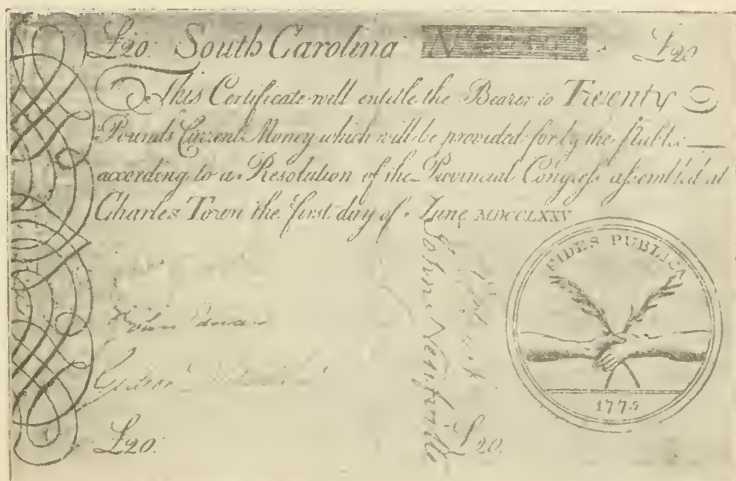 £20. South Carolina £20
This Certificate will entitle the Bearer to Twenty
Pounds Current Money which will be provided for by the Public
according to a Resolution of the Provincial Congress assembled at
Charles Town the first day of June MDCCLXXV
FIDES PUBLICA
1775
John
John Neufville
£20. £20.